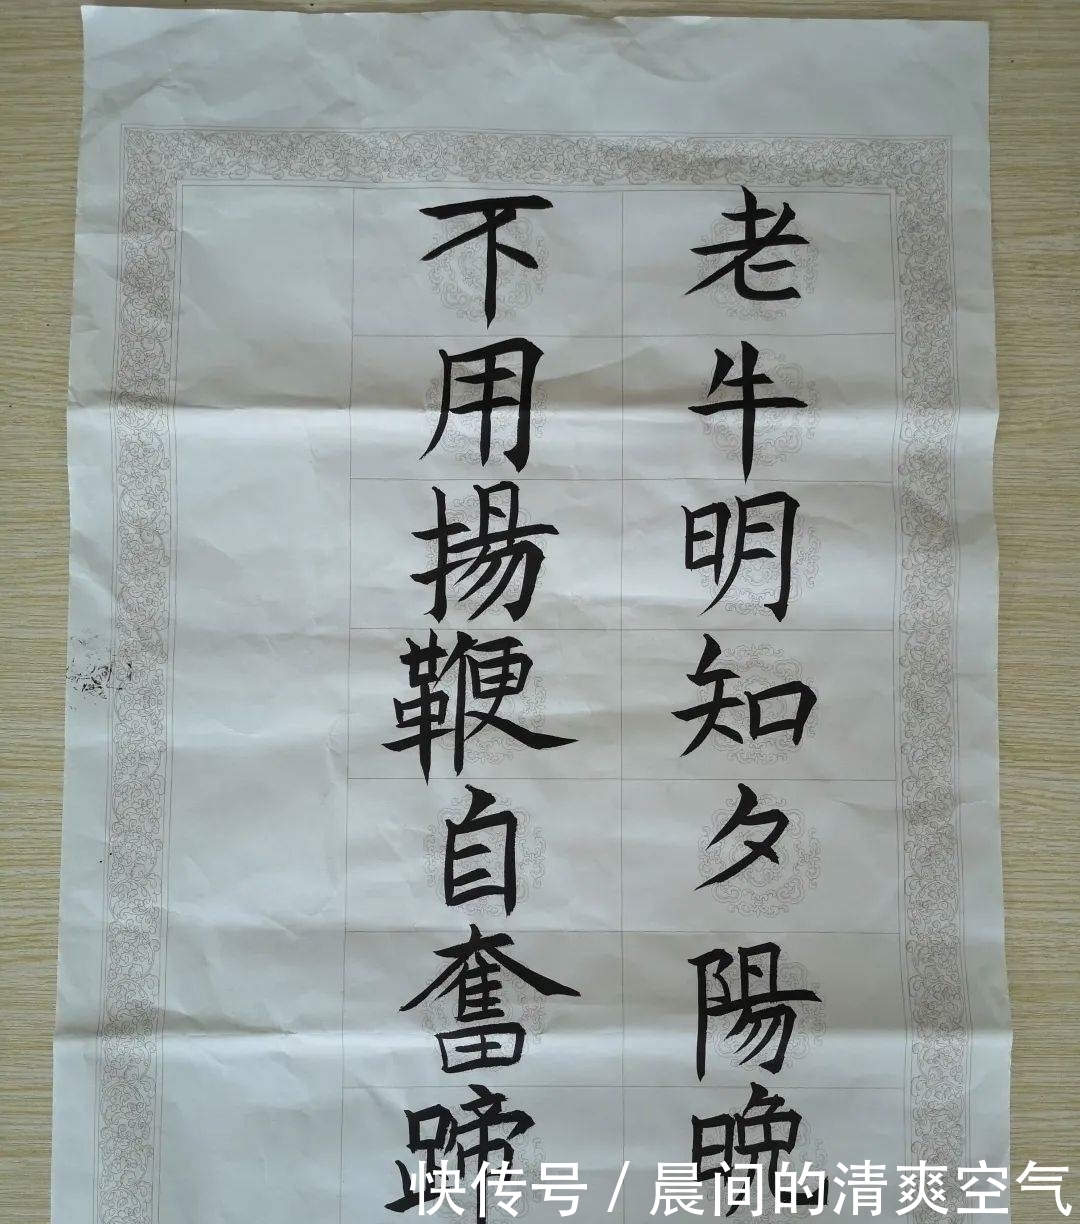 老牛明知夕陽晚
不用揚鞭自奮蹄
快传号 / 晨间的清爽空气